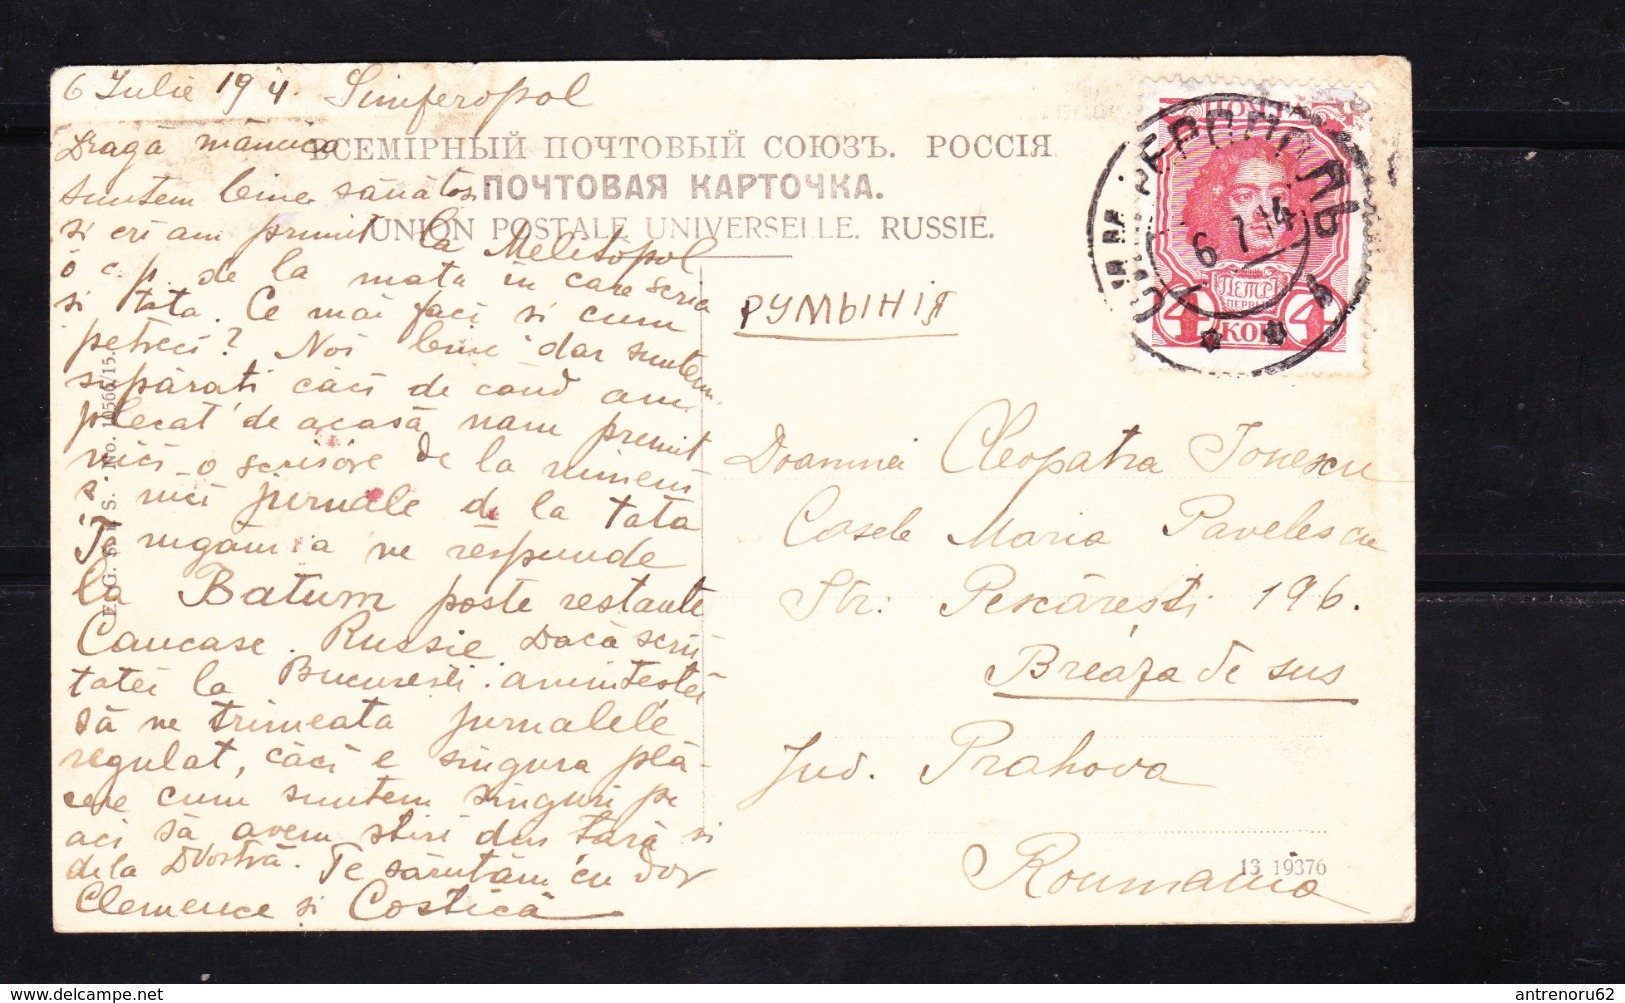 6 Iulie 1914. Simferopol
Dragă mămica
suntem bine sănătos
si eri am primit la Melitopol
o c.p. de la mata în care scria
si tata. Ce mai faci si cum
petreci? Noi bine dar suntem
supărati căci de când am
plecat de acasă nam premit
nici o scrisore de la nimeni
si nici jurnale de la tata
Te rugăm a ne respunde
la Batum poste restante
Caucase. Russie Dacă scrii
tatei la Bucuresti. amintestei
să ne trimeata jurnalele
regulat, căci e singura plă-
cere cum suntem singuri pe
aci să avem stiri din tară si
dela Dvostră. Te sărutăm cu dor
Clemence si Costică
ВСЕМІРНЫЙ ПОЧТОВЫЙ СОЮЗЪ. РОССІЯ
ПОЧТОВАЯ КАРТОЧКА.
UNION POSTALE UNIVERSELLE. RUSSIE.
РУМЫНІЯ
ПОЧТА
СИМФЕРОПОЛЬ
6 7 14
ПЕТРЪ
ПЕРВЫЙ
4 КОП 4
Doamnei Cleopatra Ionescu
Casele Maria Pavelescu
Str: Pescărești 196.
Breaza de sus
Jud. Prahova
Roumania
13 19376
antrenoru62